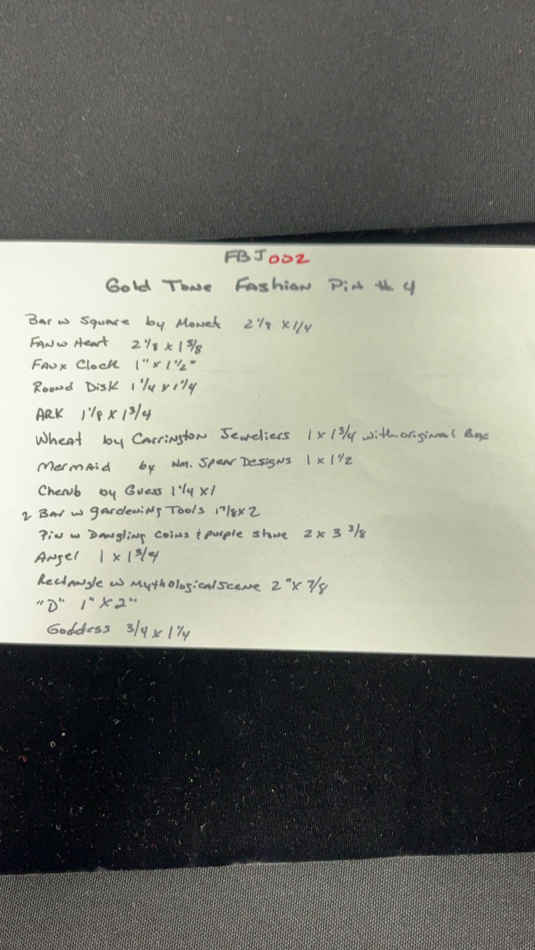 FBJ002
Gold Tone Fashion Pin # 4
Bar w Square by Monet 2 1/8 x 1/4
Fan w Heart 2 1/8 x 1 3/8
Faux Clock 1" x 1 1/2"
Round Disk 1 1/4 x 1 1/4
ARK 1 1/8 x 1 3/4
Wheat by Carrington Jewelers 1 x 1 3/4 with original Box
Mermaid by Wm. Spear Designs 1 x 1 1/2
Cherub by Guess 1 1/4 x 1
2 Bar w gardening Tools 1 7/8 x 2
Pin w Dangling Coins + purple stone 2 x 3 3/8
Angel 1 x 1 3/4
Rectangle w Mythological Scene 2" x 7/8
"D" 1" x 2"
Goddess 3/4 x 1 1/4